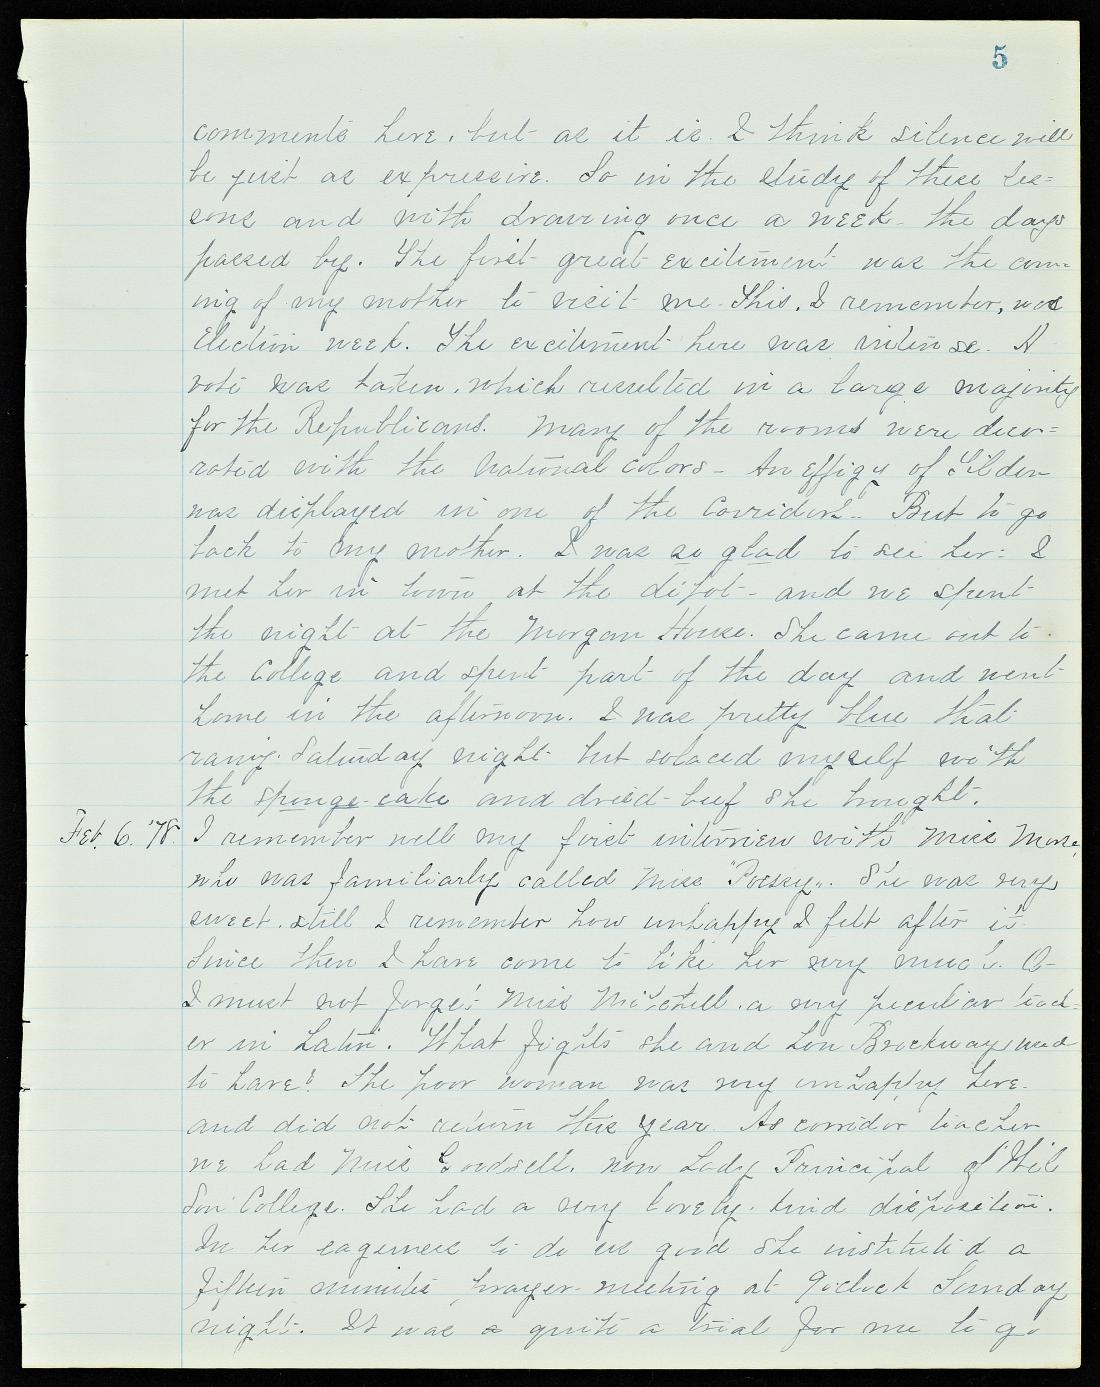 5
comments here, but as it is I think silence will
be just as expressive. So in the study of these les=
sons and with drawing once a week - the days
passed by. The first great excitement was the com-
ing of my mother to visit me. This, I remember, was
Election week. The excitement here was intense. A
vote was taken, which resulted in a large majority
for the Republicans. Many of the rooms were deco=
rated with the National colors - An effigy of Tilden
was displayed in one of the Corridors - But to go
back to my mother. I was so glad to see her: I
met her in town at the depot - and we spent
the night at the Morgan House. She came out to
the College and spent part of the day and went
home in the afternoon. I was pretty blue that
rainy Saturday night but solaced myself with
the sponge-cake and dried-beef she brought.
Feb. 6. '78. I remember well my first interview with Miss Morse,
who was familiarly called Miss "Possy". She was very
sweet, still I remember how unhappy I felt after it.
Since then I have come to like her very much. O-
I must not forget Miss Mitchell, a very peculiar teach=
er in Latin. What fights she and Lou Brockway used
to have! The poor woman was very unhappy here
and did not return this year. As corridor teacher
we had Miss Goodsell, now Lady Principal of Wil
son College. She had a very lovely, kind disposition.
In her eagerness to do us good she instituted a
fifteen minutes prayer-meeting at 9 o'clock Sunday
night. It was a quite a trial for me to go